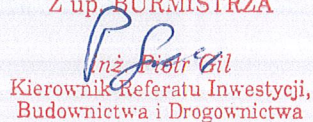 Z up. BURMISTRZA
inż. Piotr Gil
Kierownik Referatu Inwestycji,
Budownictwa i Drogownictwa